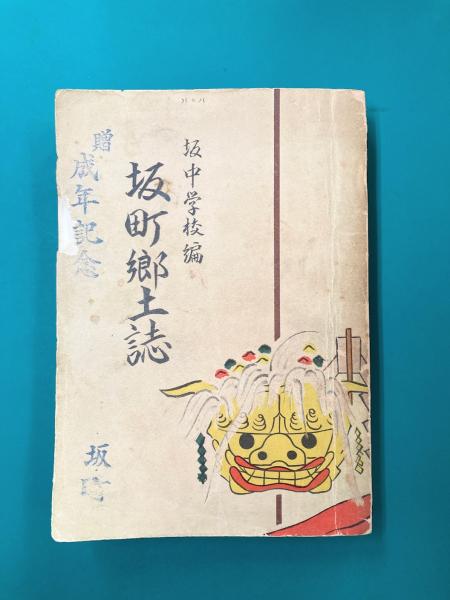 坂中学校編
坂町郷土誌
贈
成年記念
坂町